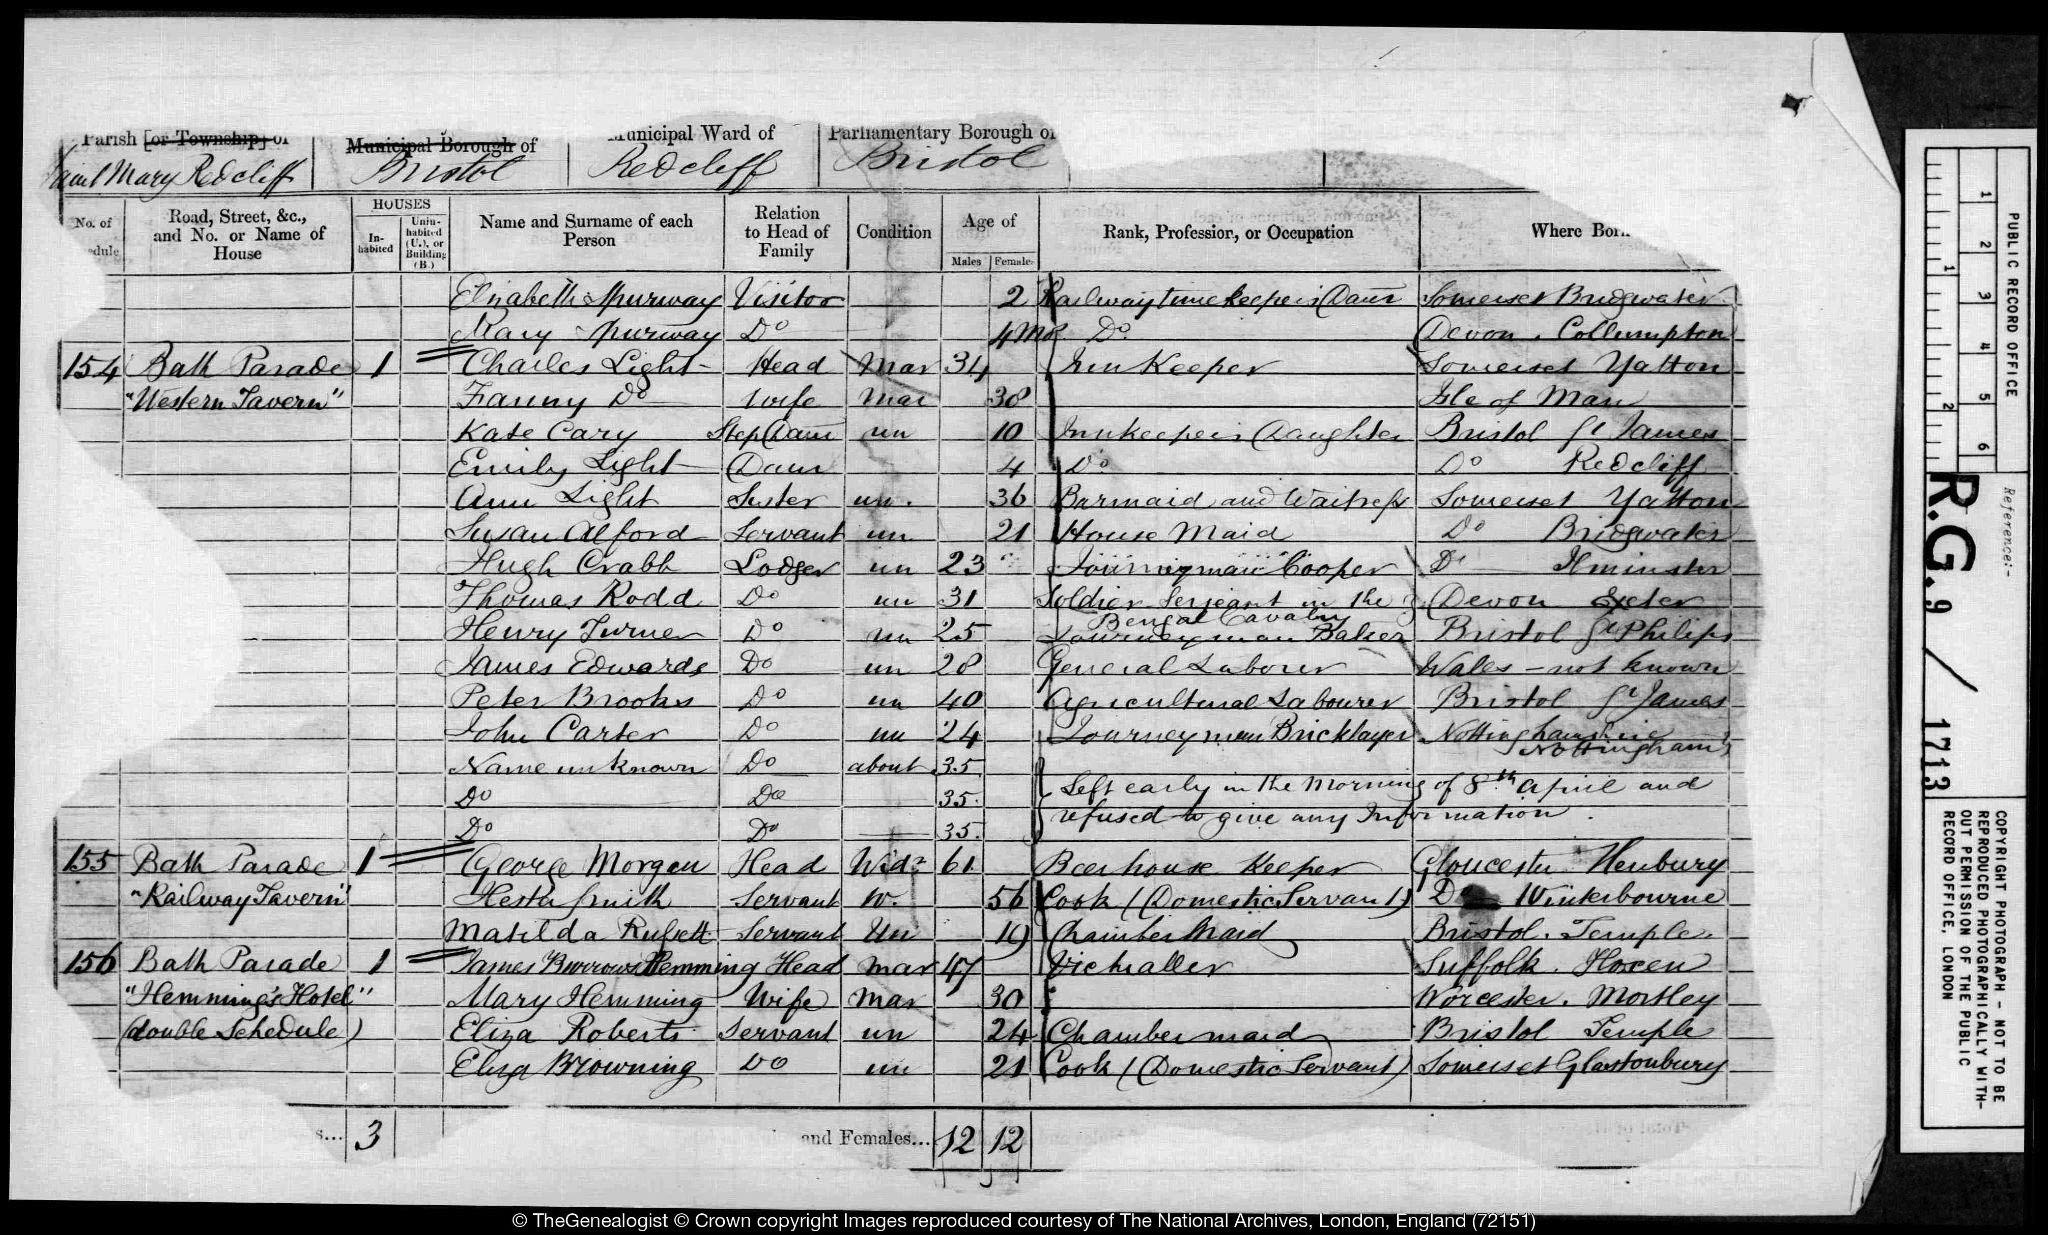 Parish [or Township] of Municipal Borough of Municipal Ward of Parliamentary Borough of
Saint Mary Redcliff Bristol Redcliff Bristol
No. of Schedule Road, Street, &c., and No. or Name of House HOUSES In-habited Unin-habited (U.), or Building (B.) Name and Surname of each Person Relation to Head of Family Condition Age of Males Females Rank, Profession, or Occupation Where Born
Elizabeth Spurway Visitor 2 Railway time keeper's Daur Somerset Bridgwater
Mary Spurway Do 4 Mo Do Devon. Collumpton
154 Bath Parade 1 Charles Light Head Mar 34 Inn Keeper Somerset Yatton
"Western Tavern" Fanny Do Wife Mar 38 Isle of Man
Kate Cary Step Daur un 10 Innkeepers Daughter Bristol St James
Emily Light Daur 4 Do Do Redcliff
Ann Light Sister un. 36 Barmaid and Waitress Somerset Yatton
Susan Alford Servant un 21 House Maid Do Bridgwater
Hugh Crabb Lodger un 23 Journeyman Cooper Do Ilminster
Thomas Rodd Do un 31 Soldier Serjeant in the 3 Devon Exeter
Bengal Cavalry
Henry Turner Do un 25 Journeyman Baker Bristol St Philips
James Edwards Do un 28 General Laborer Wales - not known
Peter Brooks Do un 40 Agricultural Labourer Bristol St James
John Carter Do un 24 Journeyman Bricklayer Nottinghamshire
Nottingham
Name unknown Do about 35
Do Do 35. Left early in the Morning of 8th April and
refused to give any Information.
Do Do 35.
155 Bath Parade 1 George Morgan Head Widr 61 Beerhouse Keeper Gloucester Henbury
"Railway Tavern" Hester Smith Servant W. 56 Cook (Domestic Servant) Do Winterbourne
Matilda Russett Servant Un 19 Chamber Maid Bristol. Temple.
156 Bath Parade 1 James Burrows Hemming Head Mar 47 Victualler Suffolk. Hoxen
"Hemming's Hotel" Mary Hemming Wife Mar 30 Worcester. Mortley
(double Schedule) Eliza Roberts Servant un 24 Chambermaid Bristol Temple
Eliza Browning Do un 21 Cook (Domestic Servant) Somerset Glastonbury
s... 3 and Females... 12 12
PUBLIC RECORD OFFICE
1 2 3 4 5 6
1 2
Reference:-
R.G. 9 / 1713
COPYRIGHT PHOTOGRAPH - NOT TO BE
REPRODUCED PHOTOGRAPHICALLY WITH-
OUT PERMISSION OF THE PUBLIC
RECORD OFFICE, LONDON
© TheGenealogist © Crown copyright Images reproduced courtesy of The National Archives, London, England (72151)